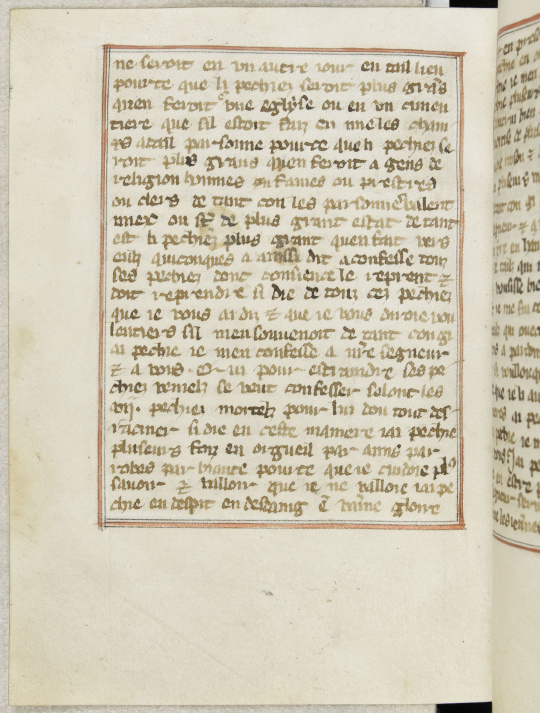 ne seroit en un autre iour en tail lieu
pourte que li pechiez seroit plus grans
quen feroit vne eglyse ou en vn cimen
tiere que sil estoit faiz en mieles cham
ps atail par sonne pourte que li pechiei se
roit plus grans quen feroit a gens de
religion hommes ou fames ou prestres
ou clers de tant con les parsonnes valent
miex ou st de plus grant estat de tant
est li pechiez plus grant quen fait vers
eulz quiconques a ainssi dit a confesse touz
ses pechiez dont consience le reprent et
doit reprendre si die de touz cez pechiez
que ie vous ai diz et que ie vous diroie vou
lentiers sil men souvenoit de tant con gi
ai pechie ie men confesse a nre segneur
et a vous. Qui pour estraindre ses pe
chiez veniels se veut confesser selont les
vij. pechiez mortelz pour lui dou tout des
raciner si die en ceste maniere iai pechie
pluseurs foiz en orgueil par anns par
robes par biaute pourte que ie cuidoie pl9
savoir et valloir que ie ne valloie iai pe
chie en despit en desdaing en vaine gloire